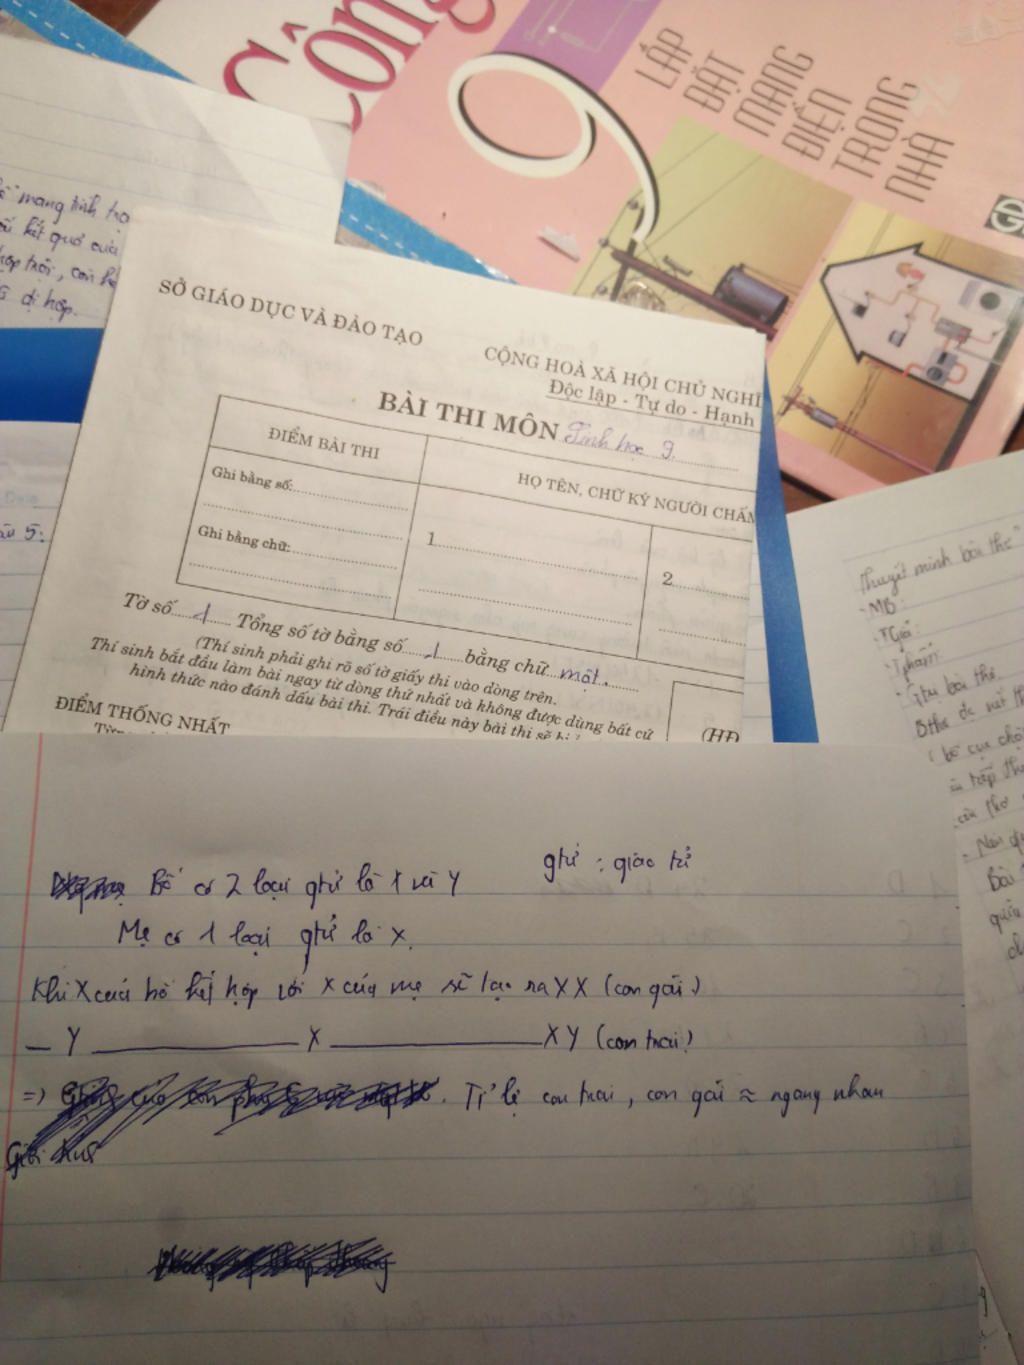 Công
9
LẮP
ĐẶT
MẠNG
ĐIỆN
TRONG
NHÀ
mang tính
kết quả của
dị hợp.
SỞ GIÁO DỤC VÀ ĐÀO TẠO
CỘNG HOÀ XÃ HỘI CHỦ NGHĨ
Độc lập - Tự do - Hạnh
BÀI THI MÔN Sinh học 9.
ĐIỂM BÀI THI
HỌ TÊN, CHỮ KÝ NGƯỜI CHẤM
Ghi bằng số:
Ghi bằng chữ:
1
2
5:
Tờ số 1 Tổng số tờ bằng số 1 bằng chữ một.
(Thí sinh phải ghi rõ số tờ giấy thi vào dòng trên.
Thí sinh bắt đầu làm bài ngay từ dòng thứ nhất và không được dùng bất cứ
hình thức nào đánh dấu bài thi. Trái điều này bài thi sẽ bị
ĐIỂM THỐNG NHẤT
(HĐ
Thuyết minh bài thơ
- MB:
- T.Giả:
bài thơ
gtử : giao tử
Bố có 2 loại gtử là X và Y
Mẹ có 1 loại gtử là X.
Khi X của bố kết hợp với X của mẹ sẽ tạo ra XX (con gái)
— Y ——— X ——— XY (con trai)
=> Tỉ lệ con trai, con gái ≈ ngang nhau